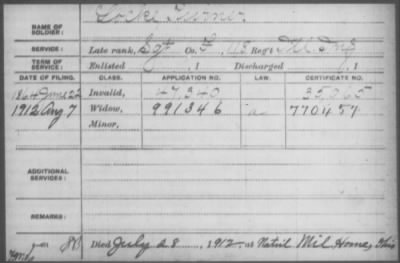 NAME OF SOLDIER: Locke Turner
SERVICE: Late rank, Sgt Co. F, 48 Reg't Ill. Inf
TERM OF SERVICE: Enlisted , 1 Discharged , 1
DATE OF FILING. CLASS. APPLICATION NO. LAW. CERTIFICATE NO.
1864 June 22 Invalid, 47,340 35,065
1912 Aug 7 Widow, 991346 770457
Minor,
ADDITIONAL SERVICES:
REMARKS:
Died July 28, 1912, at Natnl Mil Home, Ohio